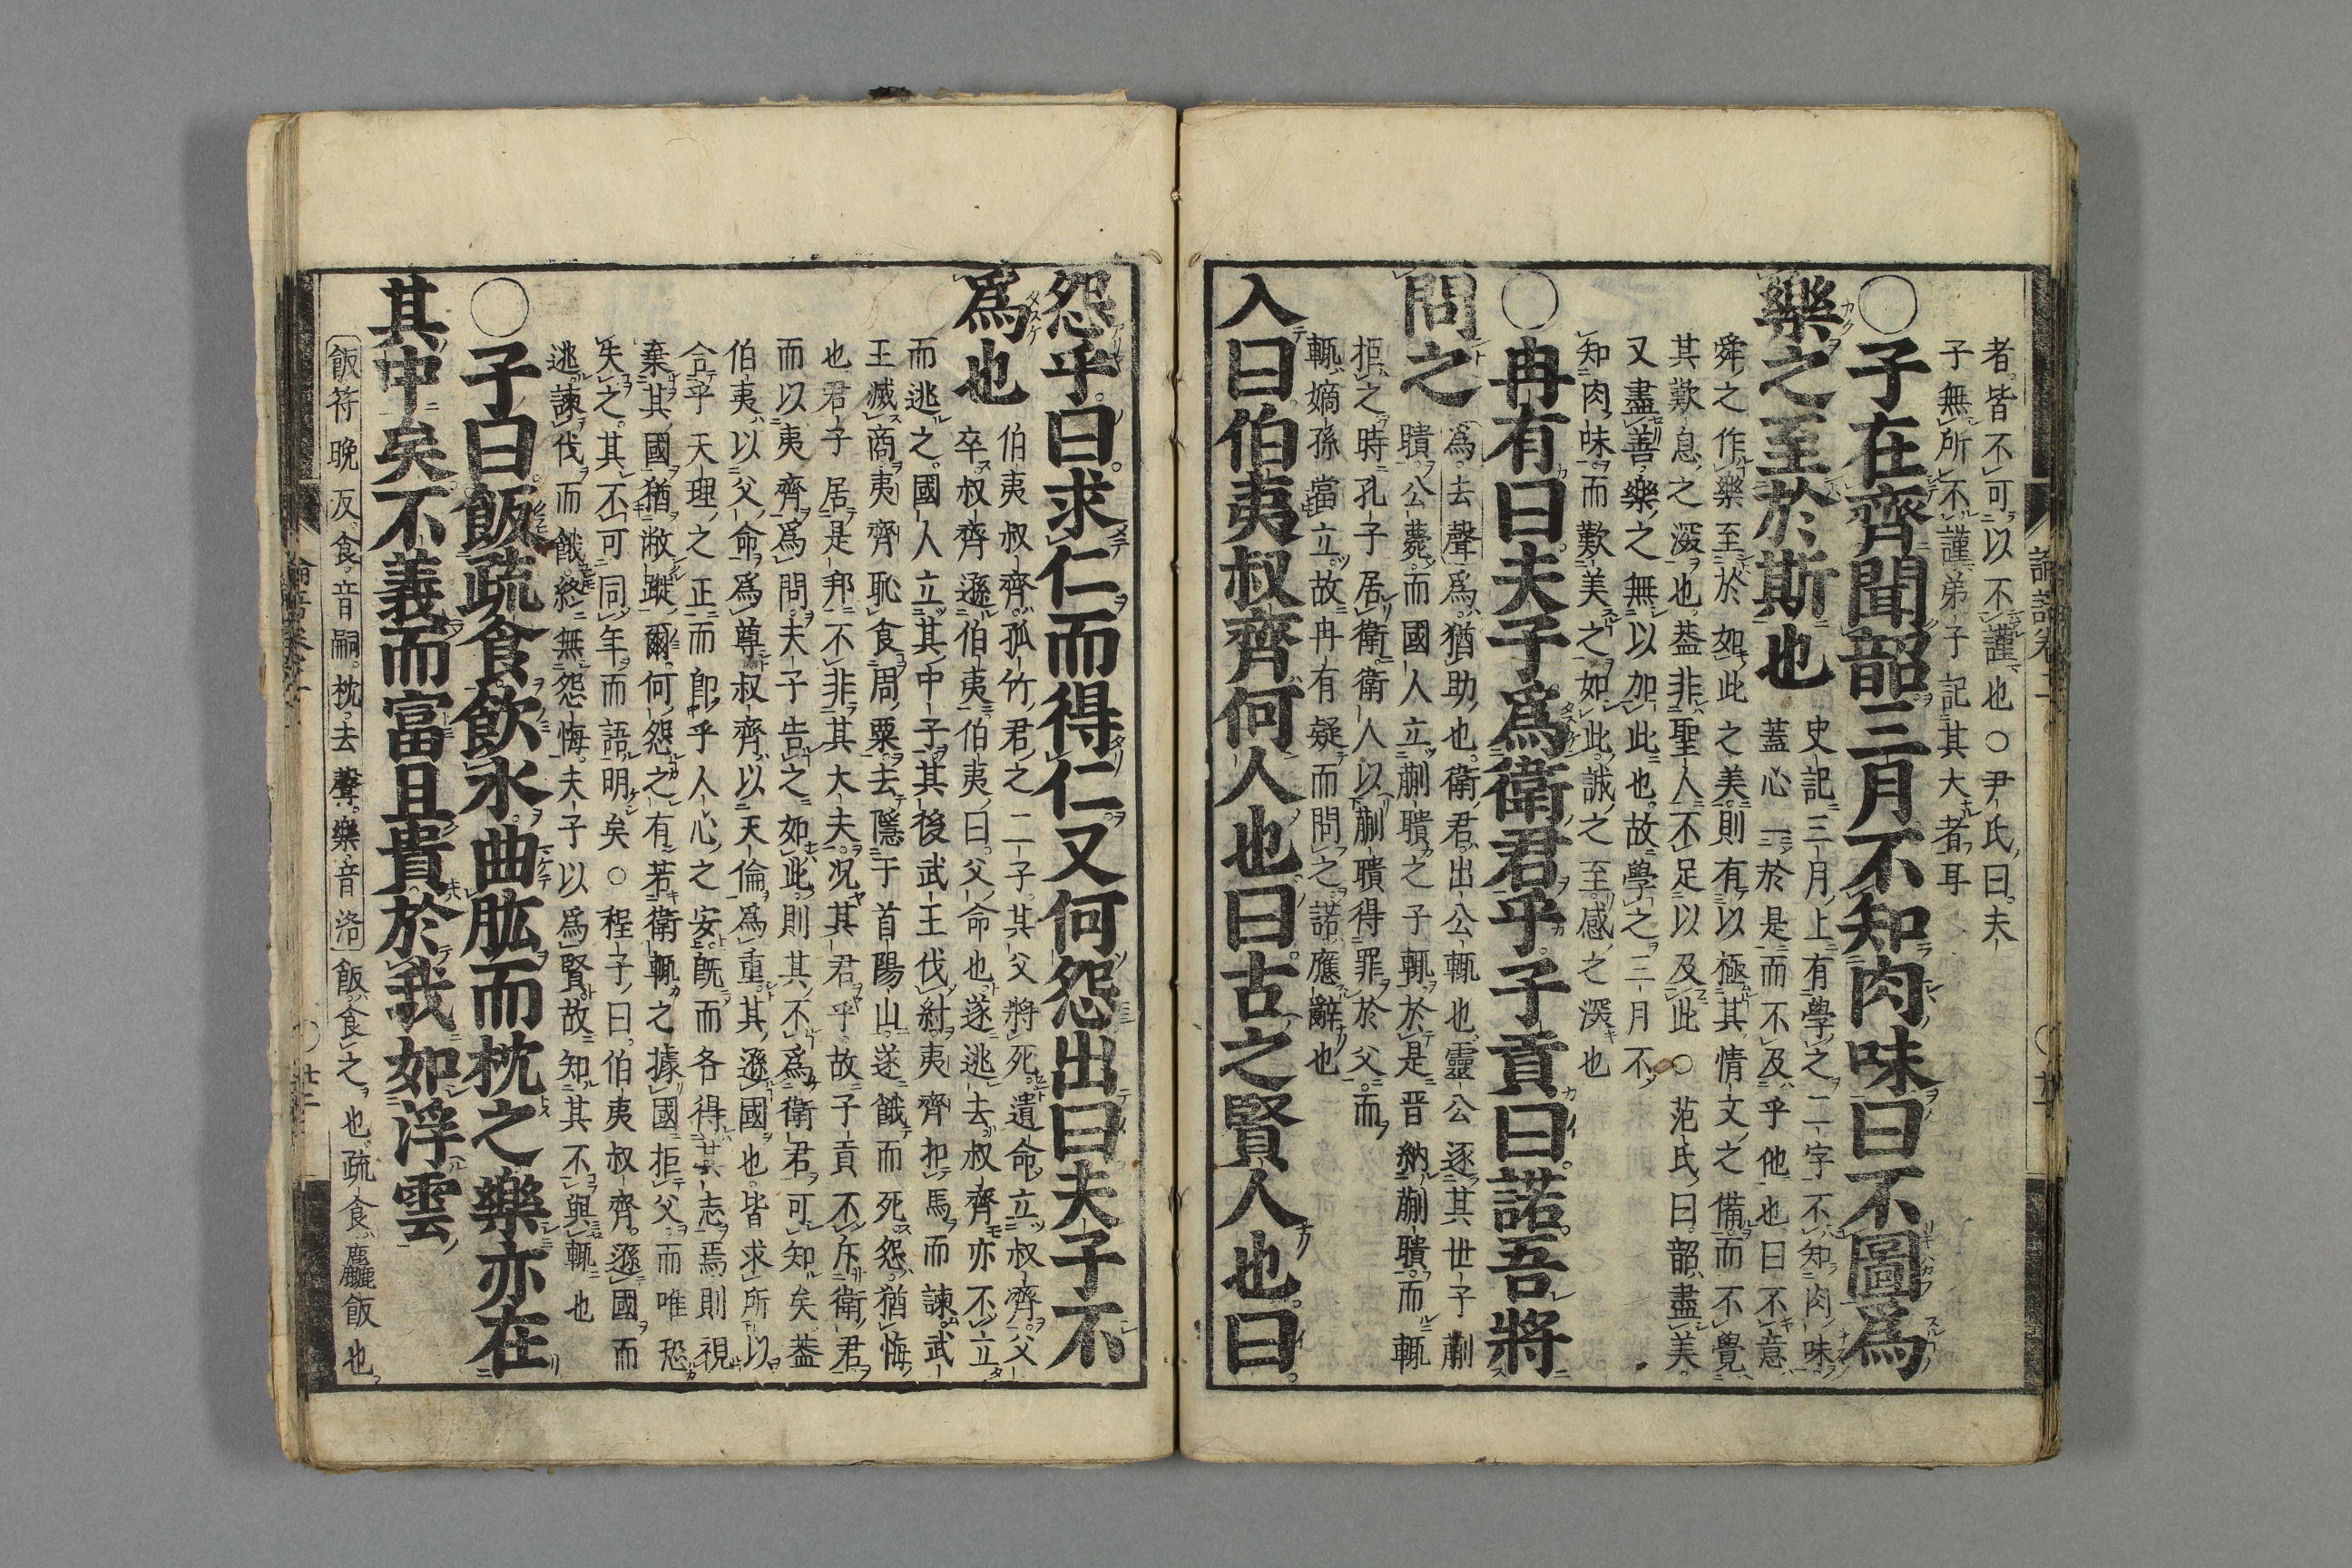 者皆不可以不謹也○尹氏曰夫
子無所不謹弟子記其大者耳
○子在齊聞韶三月不知肉味曰不圖爲
樂之至於斯也
史記三月上有學之二字不知肉味
蓋心一於是而不及乎他也曰不意
舜之作樂至於如此之美則有以極其情文之備而不覺
其歎息之深也蓋非聖人不足以及此○范氏曰韶盡美
又盡善樂之無以加此也故學之三月不
知肉味而歎美之如此誠之至感之深也
○冉有曰夫子爲衛君乎子貢曰諾吾將
問之
爲去聲爲猶助也衛君出公輒也靈公逐其世子蒯
聵公薨而國人立蒯聵之子輒於是晋納蒯聵而輒
拒之時孔子居衛衛人以蒯聵得罪於父而
輒嫡孫當立故冉有疑而問之諾應辭也
入曰伯夷叔齊何人也曰古之賢人也曰
怨乎曰求仁而得仁又何怨出曰夫子不
爲也
伯夷叔齊孤竹君之二子其父將死遺命立叔齊父
卒叔齊遜伯夷伯夷曰父命也遂逃去叔齊亦不立
而逃之國人立其中子其後武王伐紂夷齊扣馬而諫武
王滅商夷齊恥食周粟去隱于首陽山遂餓而死怨猶悔
也君子居是邦不非其大夫况其君乎故子貢不斥衛君
而以夷齊爲問夫子告之如此則其不爲衛君可知矣蓋
伯夷以父命爲尊叔齊以天倫爲重其遜國也皆求所以
合乎天理之正而即乎人心之安既而各得其志焉則視
棄其國猶敝蹝爾何怨之有若衛輒之據國拒父而唯恐
失之其不可同年而語明矣○程子曰伯夷叔齊遜國而
逃諫伐而餓終無怨悔夫子以爲賢故知其不與輒也
○子曰飯疏食飲水曲肱而枕之樂亦在
其中矣不義而富且貴於我如浮雲
飯符晩反食音嗣枕去聲樂音洛飯食之也疏食麤飯也